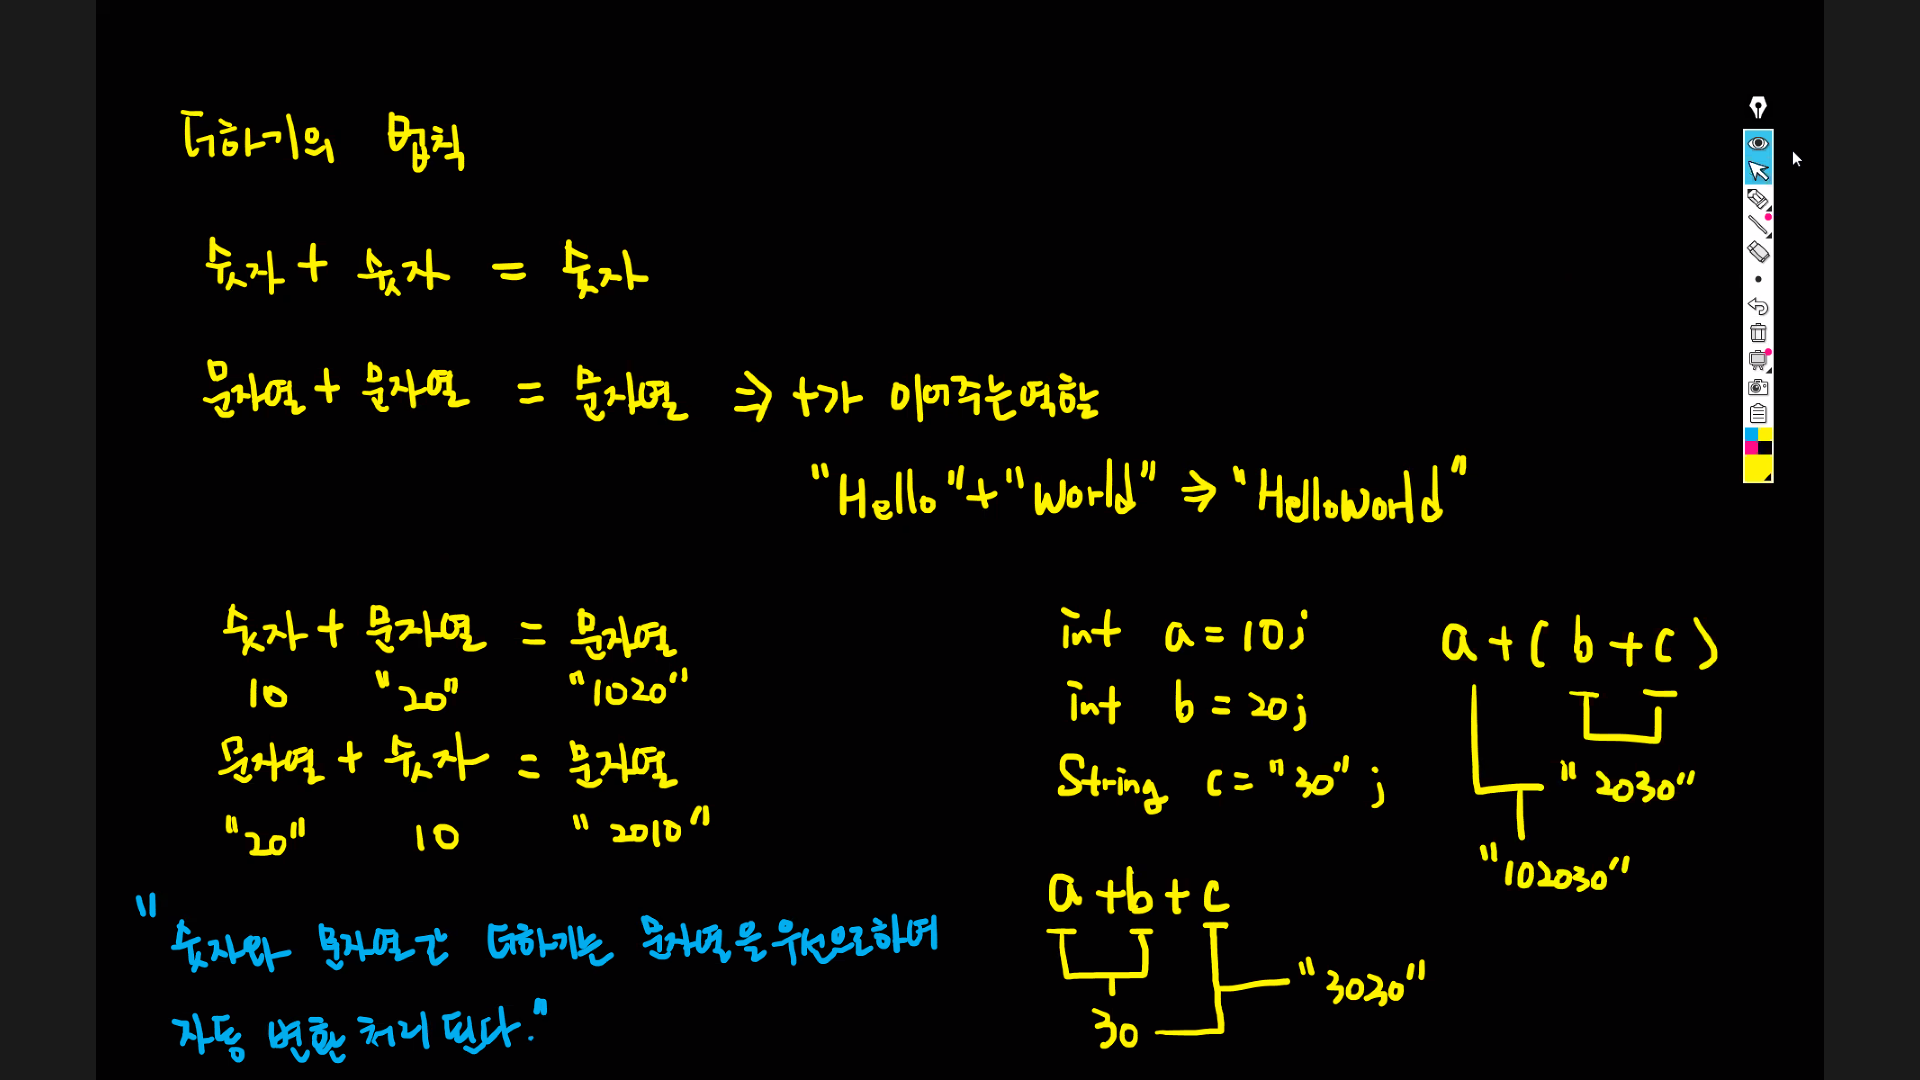 더하기의 법칙
숫자 + 숫자 = 숫자
문자열 + 문자열 = 문자열 ⇒ +가 이어주는역할
"Hello"+"World" ⇒ "HelloWorld"
숫자 + 문자열 = 문자열
10 "20" "1020"
문자열 + 숫자 = 문자열
"20" 10 "2010"
"숫자와 문자열간 더하기는 문자열을 우선으로하여
자동 변환 처리 된다."
int a = 10;
int b = 20;
String c = "30";
a + b + c
30
"3030"
a + ( b + c )
"2030"
"102030"